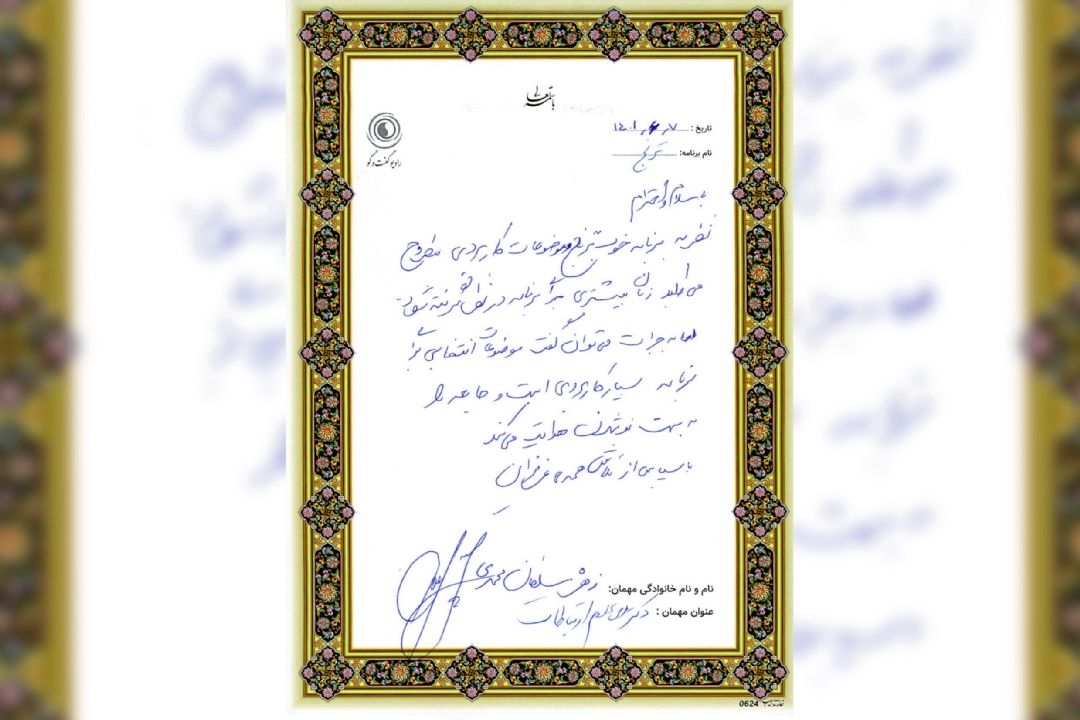 باسمه تعالی
رادیو گفت و گو
تاریخ: ۱۴۰۱,۴,۷
نام برنامه: ترنج
با سلام و احترام
نظر به برنامه خوب ترنج و موضوعات کاربردی مطروح
می طلبد زمان بیشتری برای برنامه در نظر گرفته شود
اما به جرات می‌توان گفت موضوعات انتخابی برای
برنامه بسیار کاربردی است و جامعه را
به سمت نو شدن هدایت می‌کند
با سپاس از تلاش همه عزیزان
نام و نام خانوادگی مهمان: زهره سلطان محمدی
عنوان مهمان: دکترای علوم ارتباطات
0624